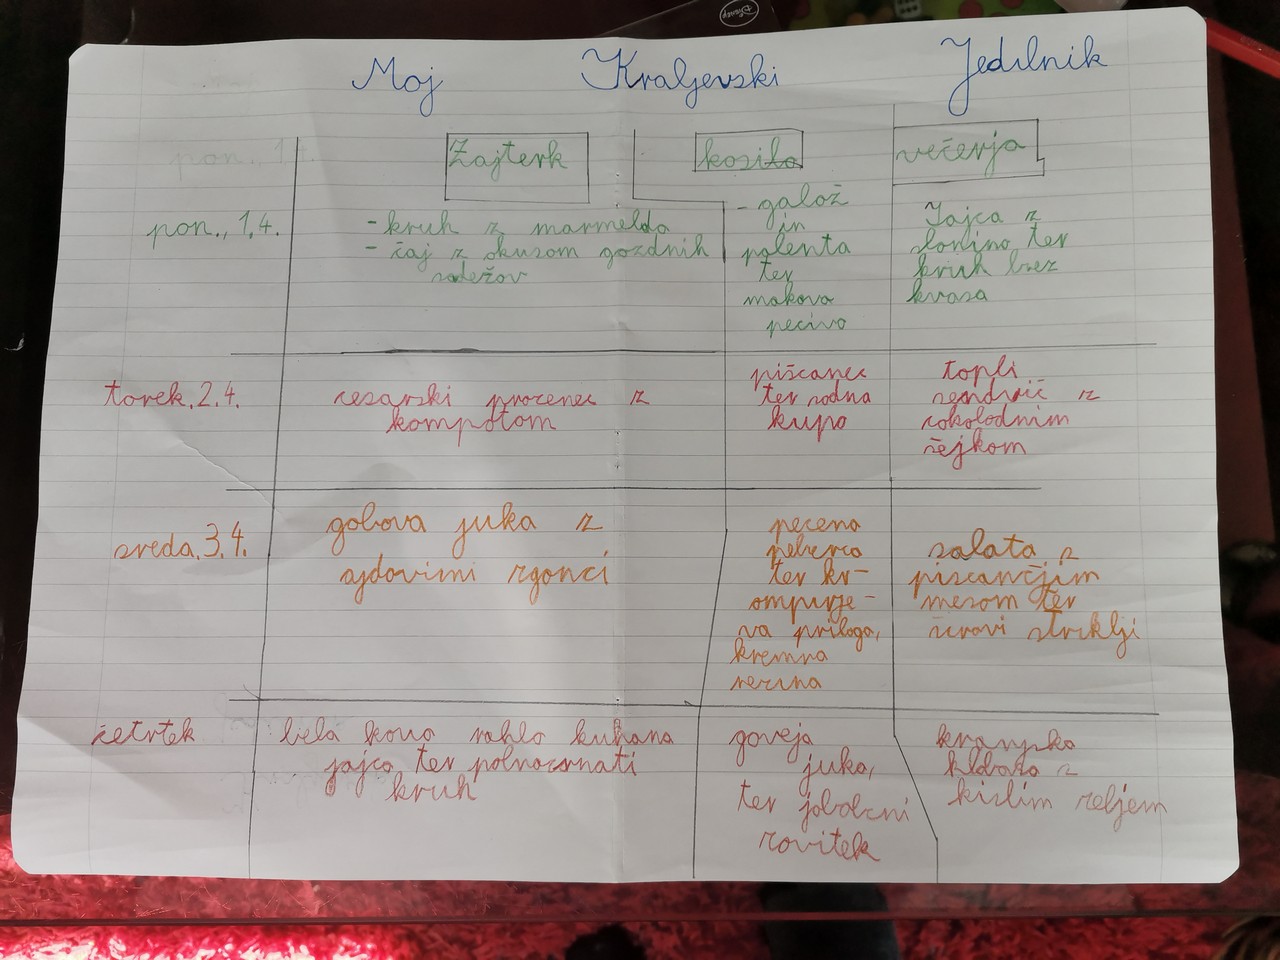 Moj Kraljevski Jedilnik
Zajterk
kosilo
večerja
pon., 1.4.
- kruh z marmeldo
- čaj z okusom gozdnih
sadežov
- galož
in
polenta
ter
makova
pecivo
Jajca z
slanino ter
kruh brez
kvasa
torek, 2.4.
cesarski procenec z
kompotom
piščanec
ter sadna
kupa
topli
sendvič z
cokolodnim
čejkom
sreda, 3.4.
gobova juka z
ajdovimi zgonci
pecena
peberca
ter kr-
ompirje-
va priloga,
kremna
rezina
salata z
piscančjim
mesom ter
sirovi štrklji
četrtek
bela kava rahlo kuhana
jajca ter polnozrnati
kruh
goveja
juka,
ter jabolcni
zavitek
kranjska
klobasa z
kislim zeljem